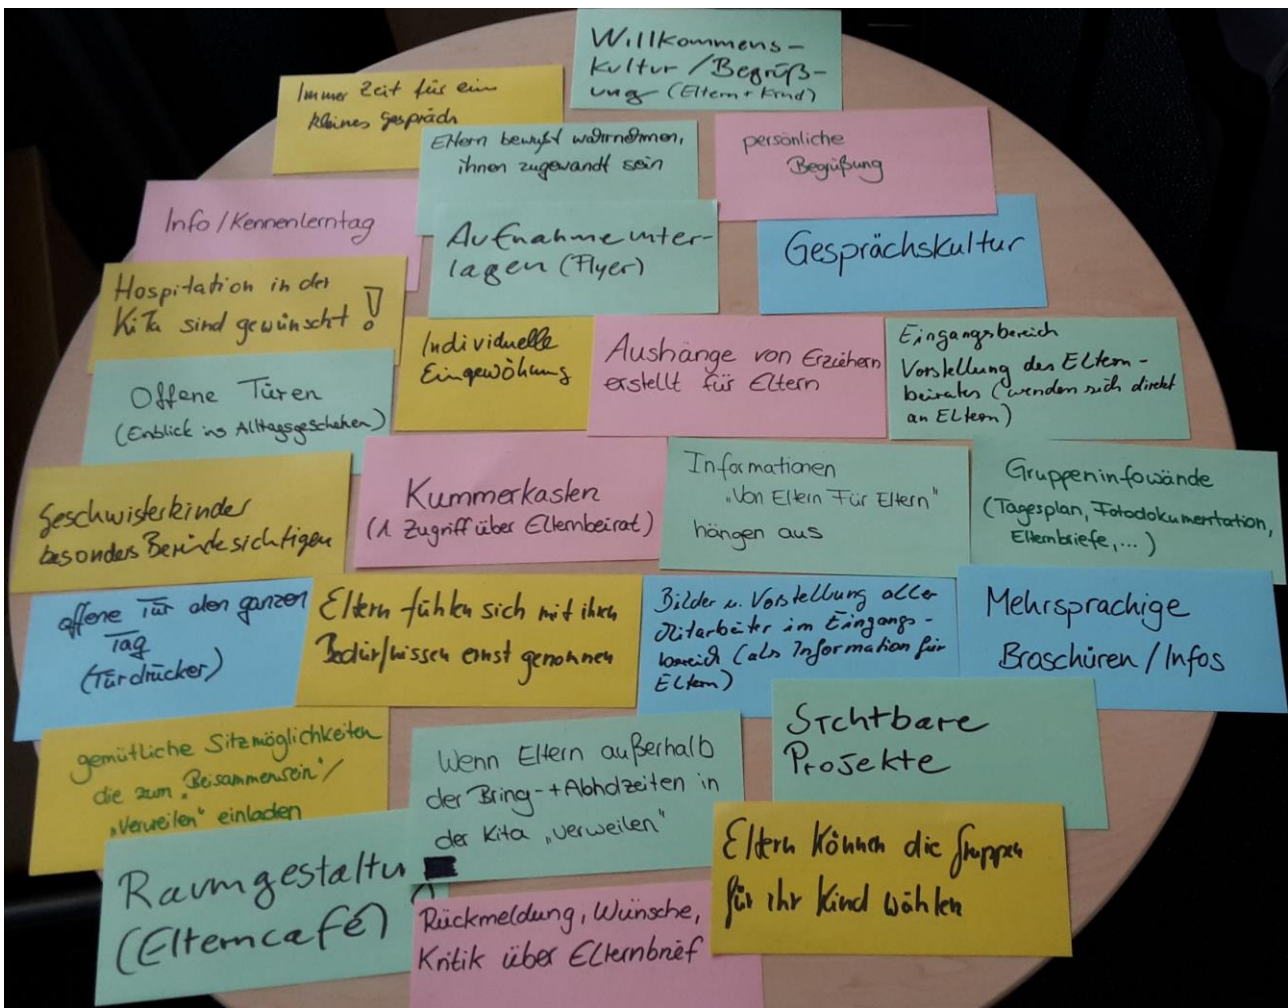 Willkommens-
kultur / Begrüß-
ung (Eltern + Kind)
Immer Zeit für ein
kleines Gespräch
Eltern bewußt wahrnehmen,
ihnen zugewandt sein
persönliche
Begrüßung
Info / Kennenlerntag
Aufnahmeunter-
lagen (Flyer)
Gesprächskultur
Hospitation in der
KiTa sind gewünscht!
Individuelle
Eingewöhung
Aushänge von Erziehern
erstellt für Eltern
Eingangsbereich
Vorstellung des Eltern-
beirates (wenden sich direkt
an Eltern)
Offene Türen
(Einblick ins Alltagsgeschehen)
Geschwisterkinder
besonders Berücksichtigen
Kummerkasten
(1 Zugriff über Elternbeirat)
Informationen
„Von Eltern Für Eltern"
hängen aus
Gruppeninfowände
(Tagesplan, Fotodokumentation,
Elternbriefe, ...)
offene Tür den ganzen
Tag
(Türdrücker)
Eltern fühlen sich mit ihren
Bedürfnissen ernst genommen
Bilder u. Vorstellung aller
Mitarbeiter im Eingangs-
bereich (als Information für
Eltern)
Mehrsprachige
Broschüren / Infos
gemütliche Sitzmöglichkeiten
die zum „Beisammensein"/
„Verweilen" einladen
Wenn Eltern außerhalb
der Bring- + Abholzeiten in
der Kita „verweilen"
Sichtbare
Projekte
Raumgestaltu
(Elterncafé)
Rückmeldung, Wünsche,
Kritik über Elternbrief
Eltern können die Gruppen
für ihr Kind wählen